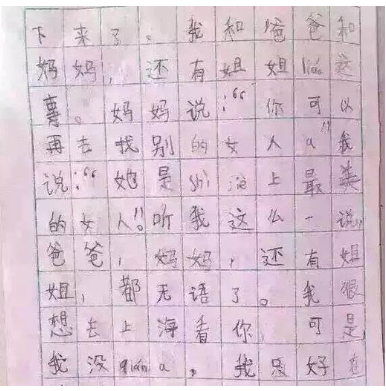 下来了。我和爸爸和
妈妈,还有姐姐liáo这
事。妈妈说:“你可以
再去找别的女人a”我
说:“她是shì jiè上最美
的女人”!听我这么一说,
爸爸,妈妈,还有姐
姐,都无语了。我很
想去上海看你,可是
我没qián a,我只好在